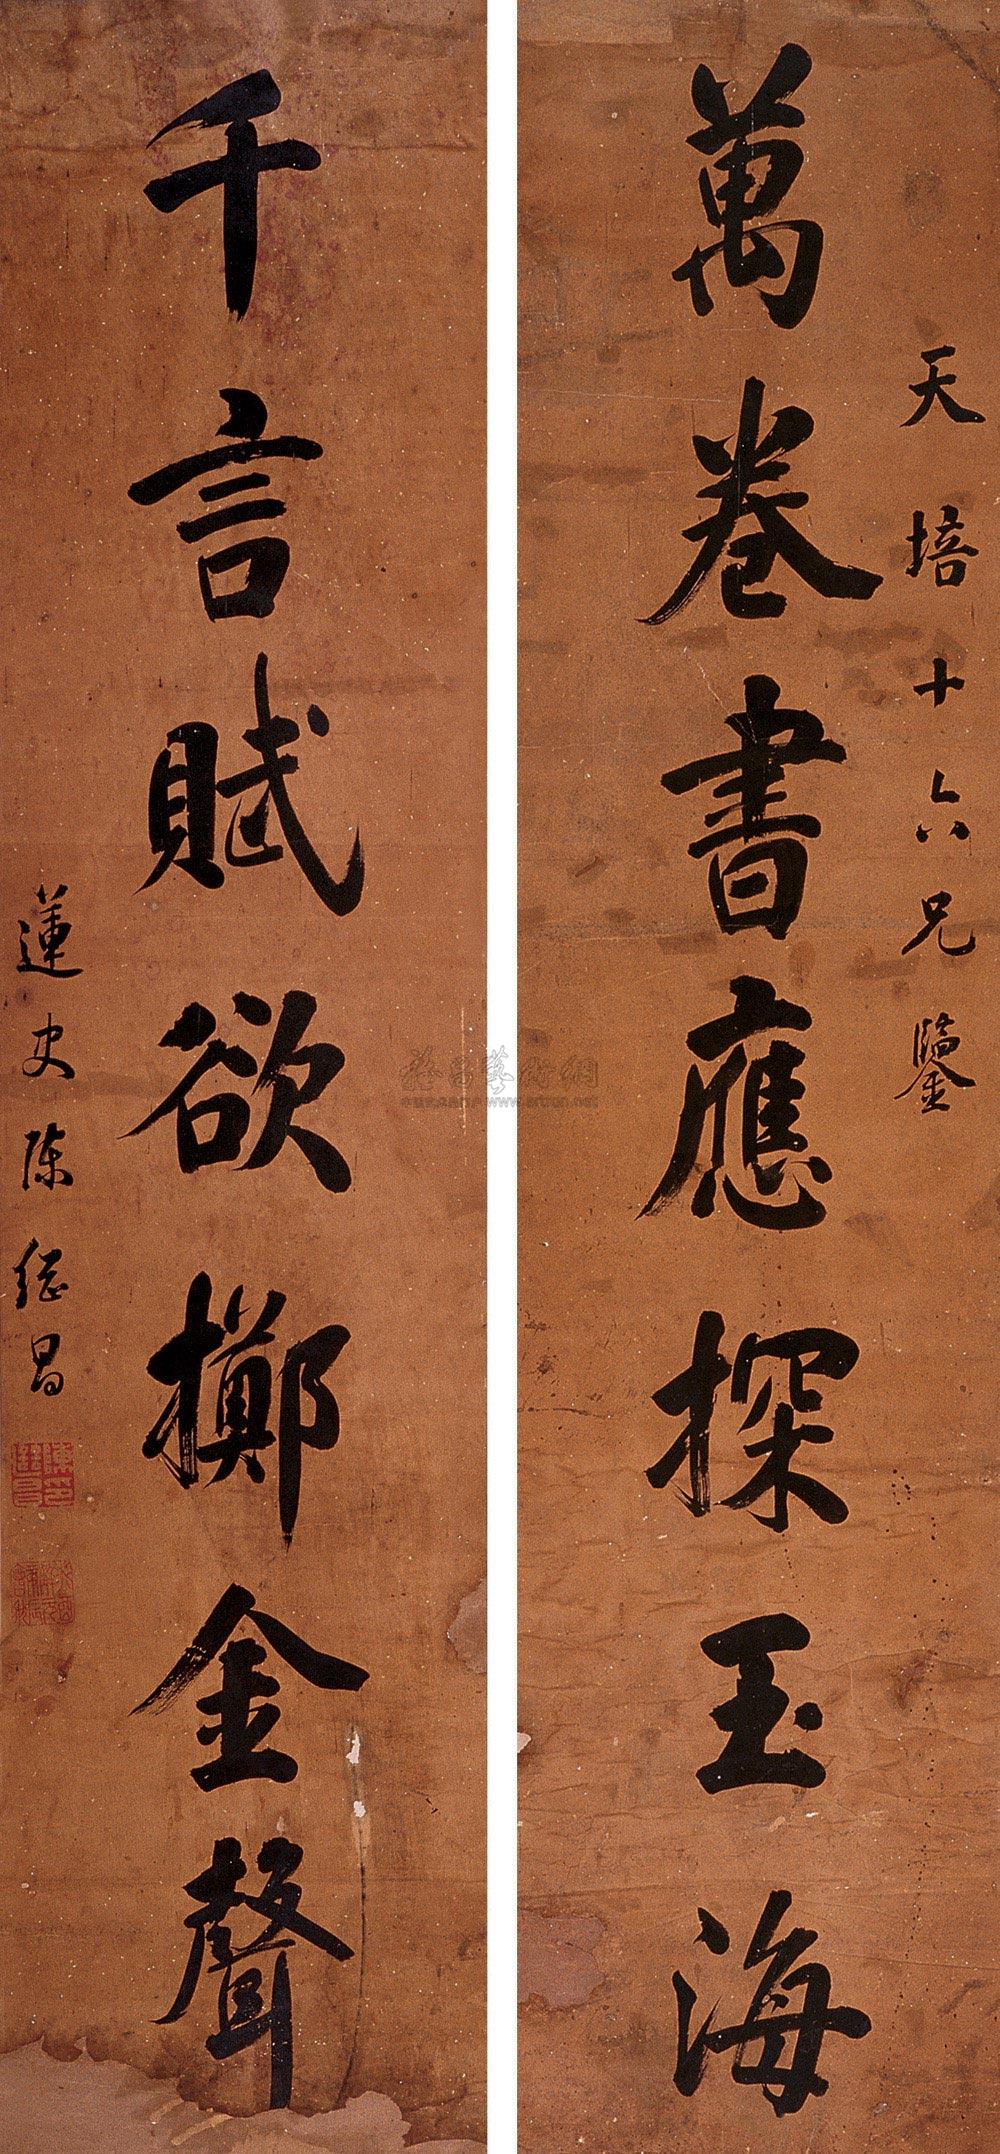 天培十六兄鑒
萬卷書應探玉海
千言賦欲擲金聲
蓮史陳繼昌